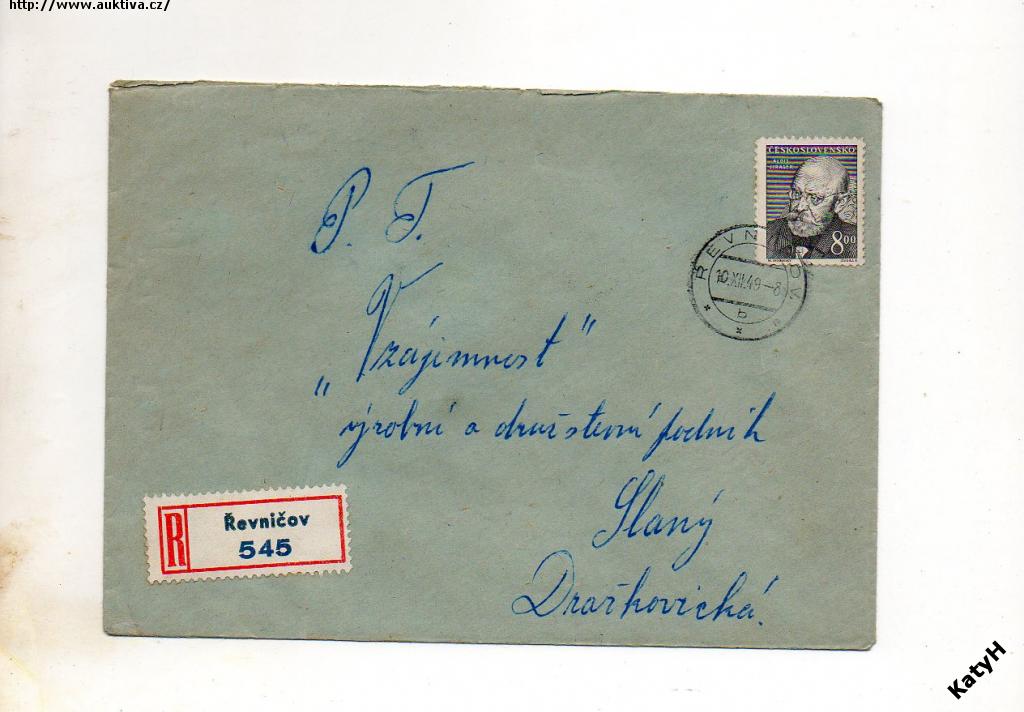 http://www.auktiva.cz/
ČESKOSLOVENSKO
ALOIS
JIRÁSEK
8 00
ŘEVNIČOV
10.XII.49-8
b
P. T.
„Vzájemnost"
výrobní a družstevní podnik
Slaný
Dražkovická.
R
Řevničov
545
KatyH